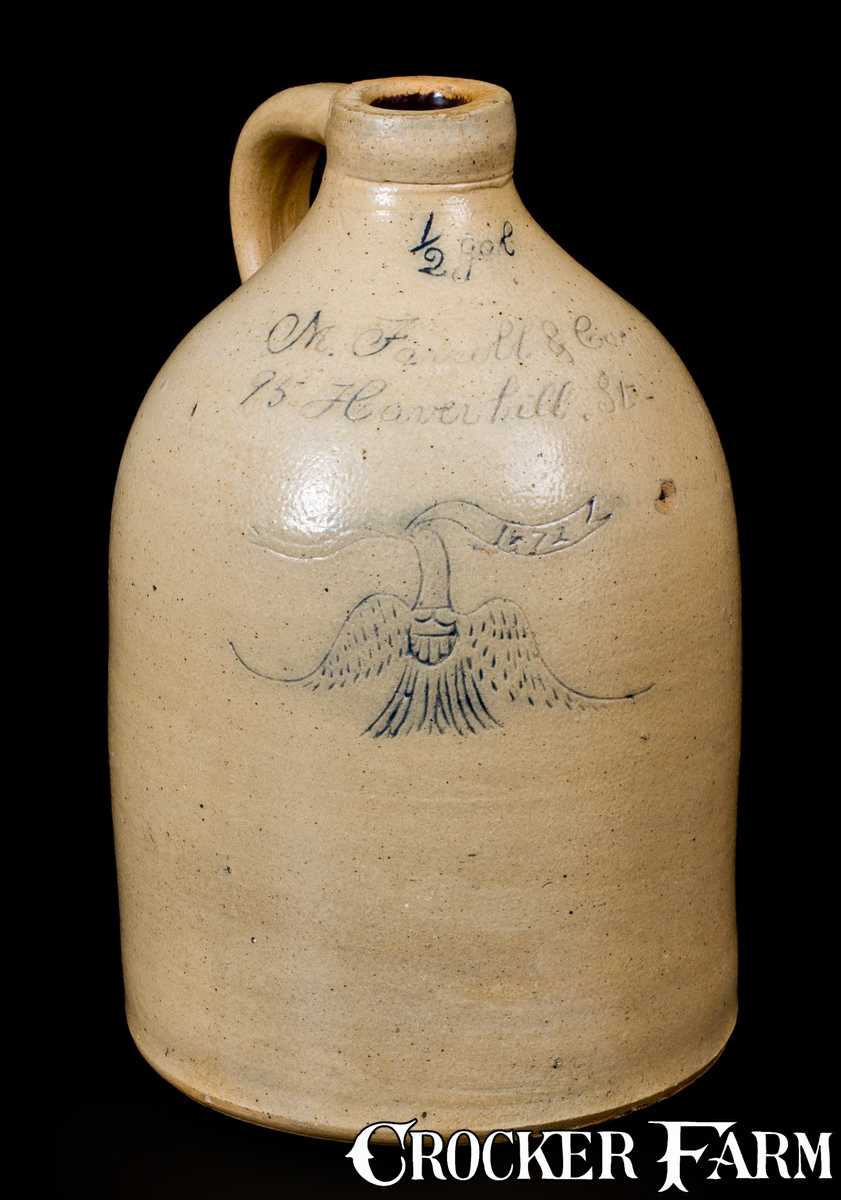 ½ gal
M. Farrell & Co.
95 Haverhill. St.
1872
CROCKER FARM